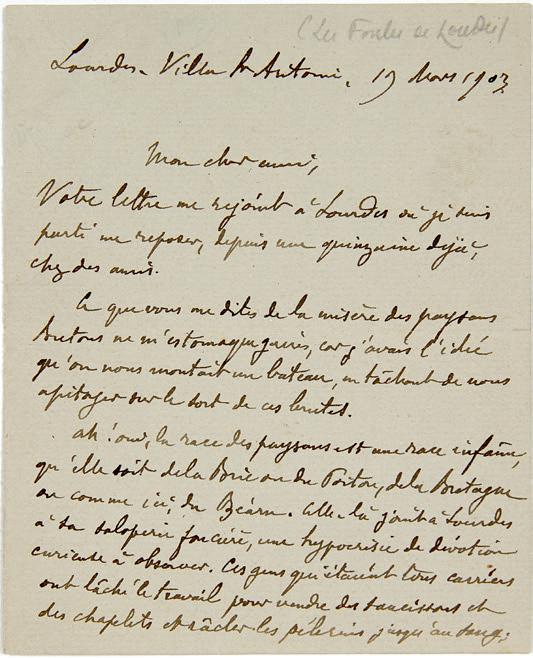 (Les Foules de Lourdes)
Lourdes. Villa St Antoine. 19 Mars 1903
Mon cher ami,
Votre lettre me rejoint à Lourdes où je suis
parti me reposer, depuis une quinzaine déjà,
chez des amis.
Ce que vous me dites de la misère des paysans
bretons ne m'estomaque guères, car j'avais l'idée
qu'on nous montait un bateau, en tâchant de nous
apitoyer sur le sort de ces brutes.
Ah! oui, la race des paysans est une race infâme,
qu'elle soit de la Brie ou du Poitou, de la Bretagne
ou comme ici, du Béarn. Celle-là joint à Lourdes
à sa saloperie foncière, une hypocrisie de dévotion
curieuse à observer. Ces gens qui étaient tous carriers
ont lâché le travail pour vendre des saucissons et
des chapelets et râcler les pèlerins jusqu'au sang;